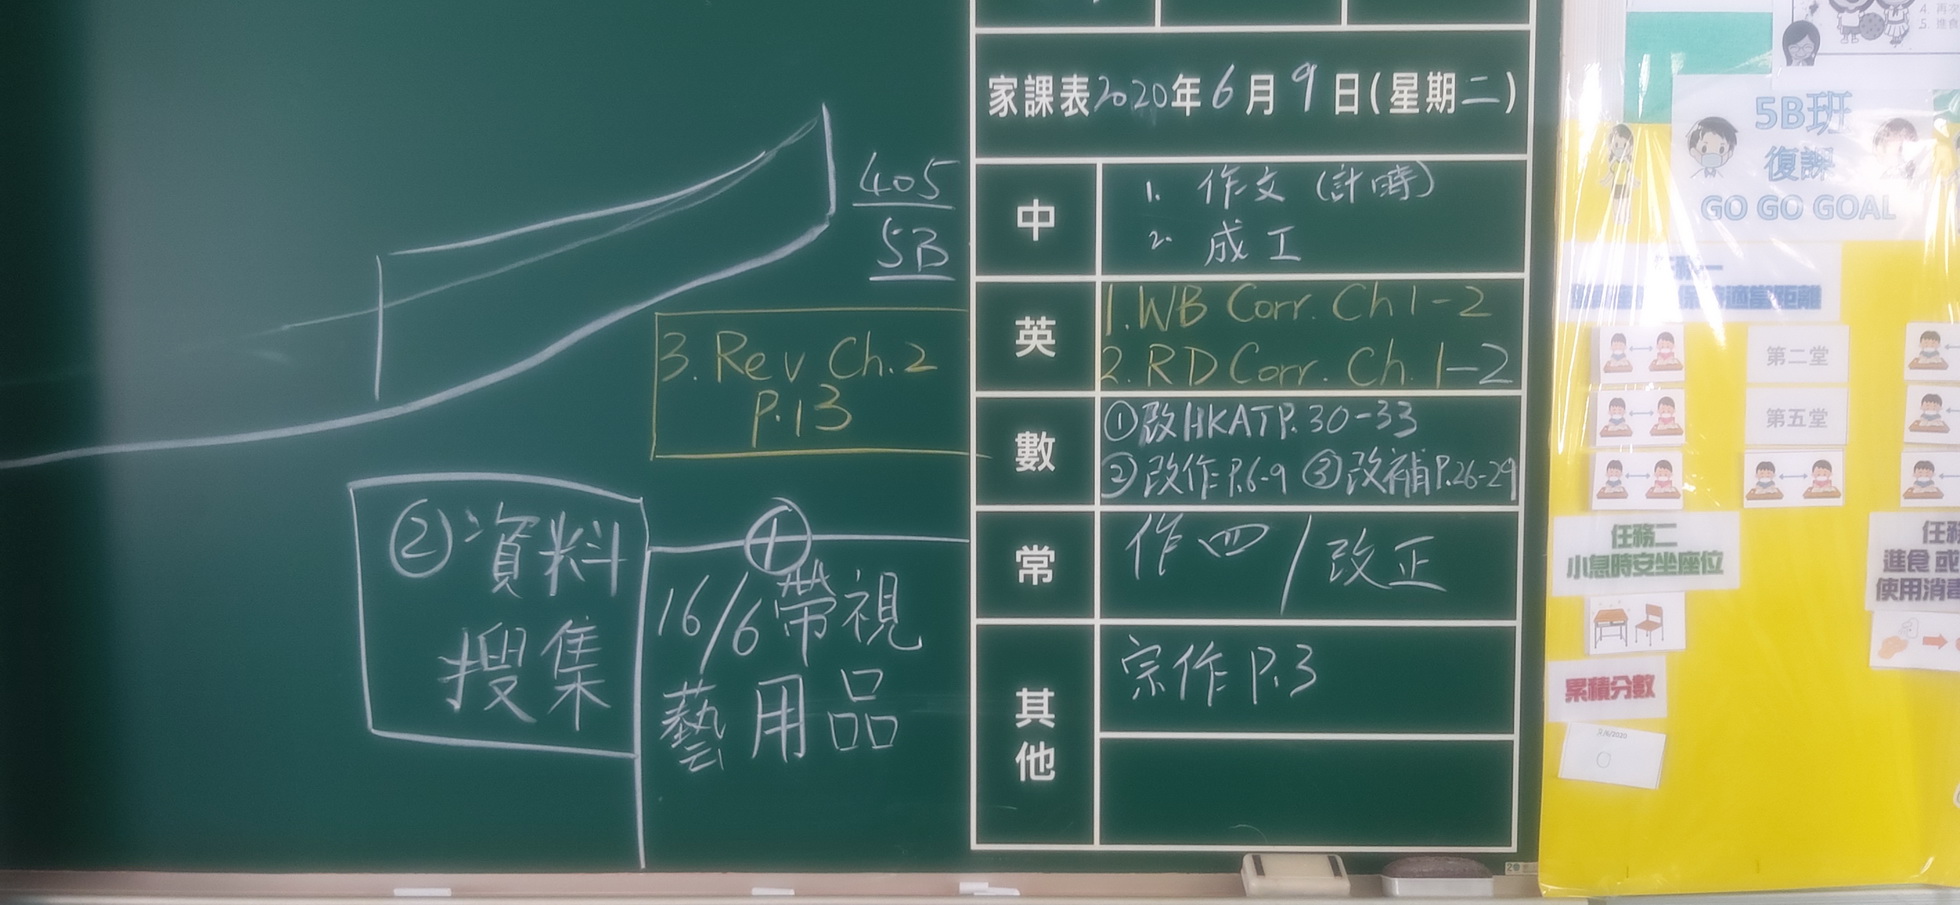 家課表2020年6月9日(星期二)
405
5B
中
1. 作文（計時）
2. 成工
英
1. WB Corr. Ch 1-2
2. RD Corr. Ch. 1-2
3. Rev Ch.2
P.13
數
①改HKAT P.30-33
②改作P.6-9 ③改補P.26-29
常
作四/改正
②資料
搜集
16/6帶視
藝用品
其他
宗作 P.3
5B班
復課
GO GO GOAL
適當距離
第二堂
第五堂
任務二
小息時安坐座位
進食或
使用消
累積分數